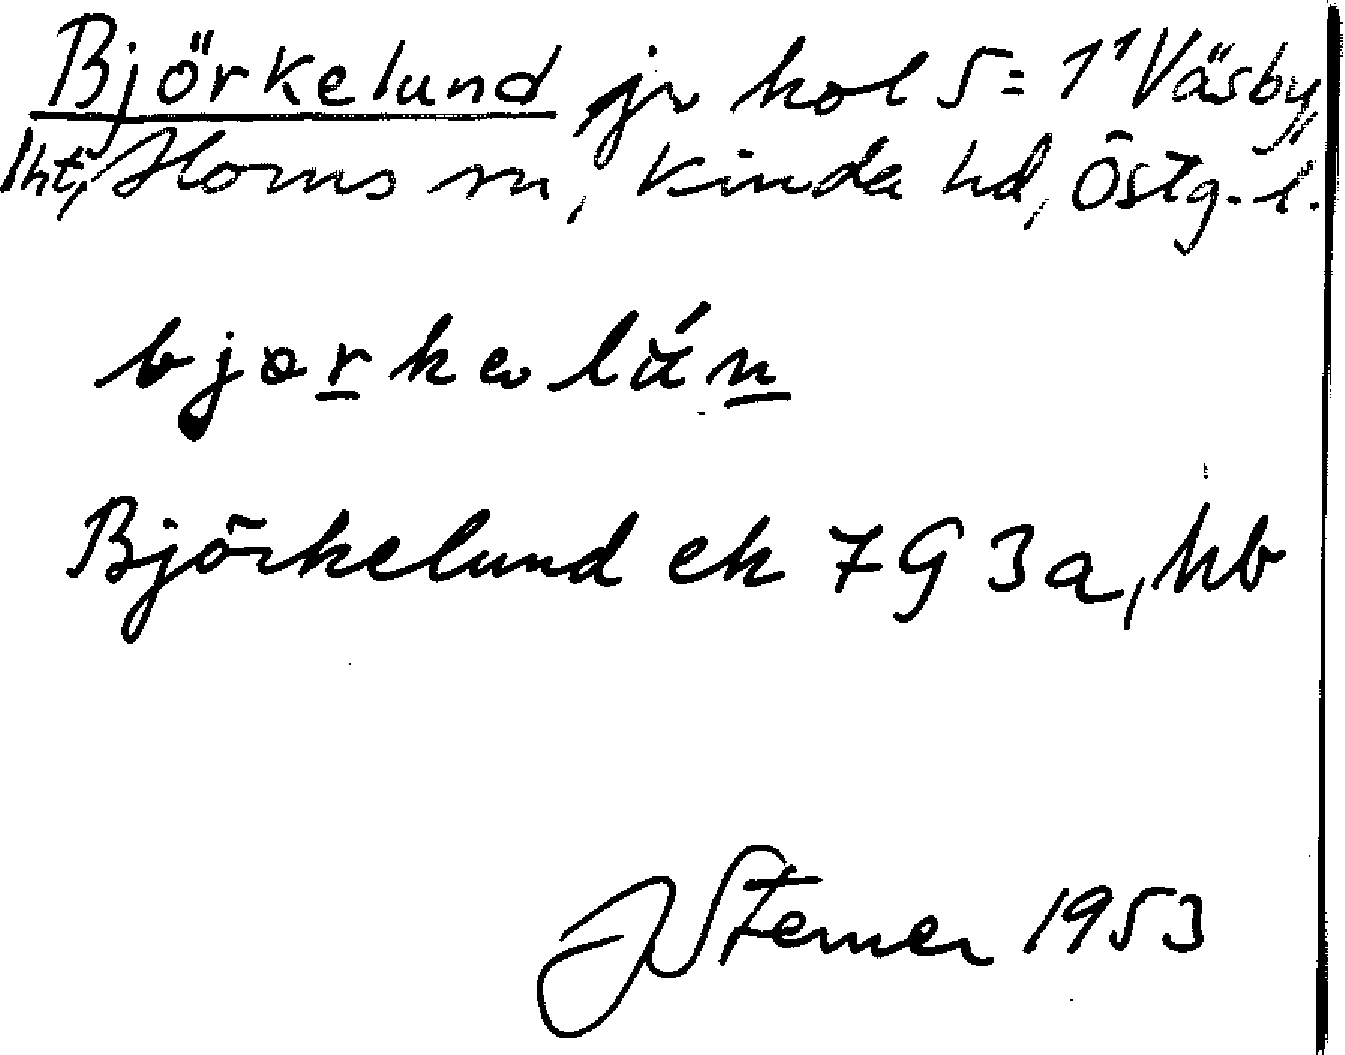 Björkelund jr kol 5 = 1¹ Väsby,
lht, Horns sn, Kinda hd, Östg. l.
bjørkəlún
Björkelund ek 7G 3a, hb
J Sterner 1953